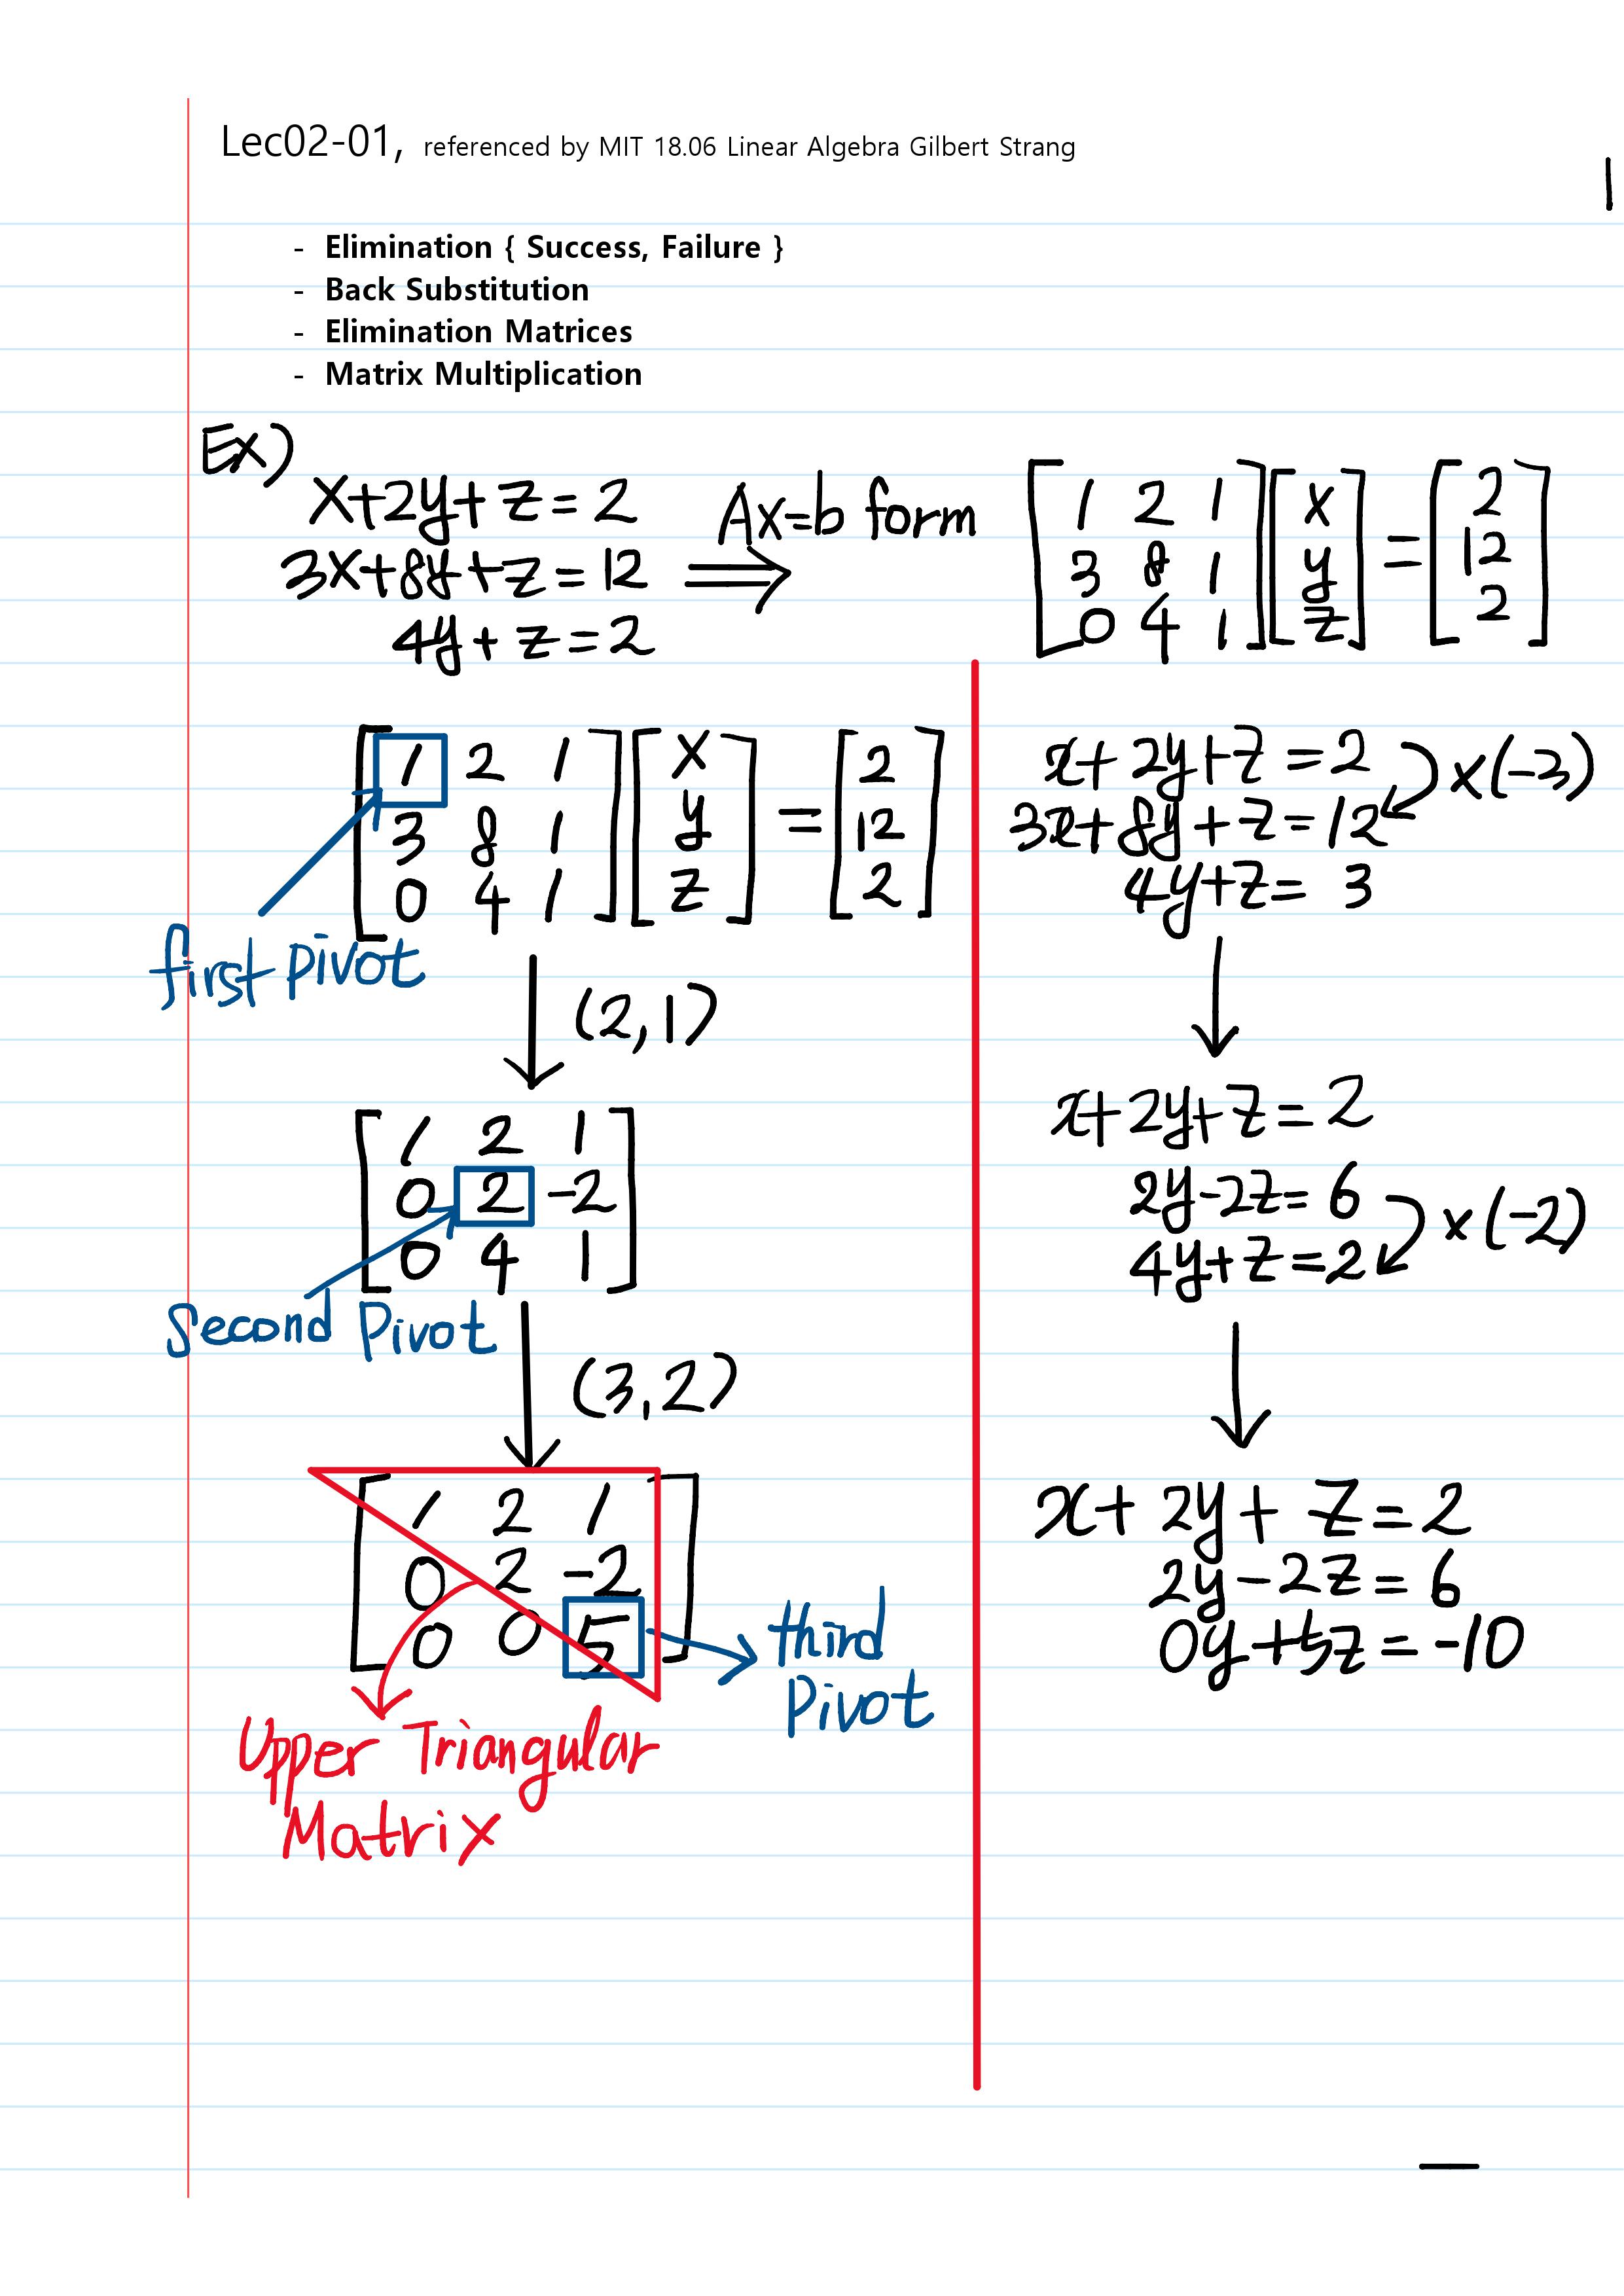 Lec02-01, referenced by MIT 18.06 Linear Algebra Gilbert Strang
- Elimination { Success, Failure }
- Back Substitution
- Elimination Matrices
- Matrix Multiplication
Ex)
x+2y+z=2
3x+8y+z=12
4y+z=2
Ax=b form
⇒
[1 2 1] [x] = [2]
[3 8 1] [y] = [12]
[0 4 1] [z] = [2]
[1 2 1] [x] = [2]
[3 8 1] [y] = [12]
[0 4 1] [z] = [2]
first pivot
(2,1)
[1 2 1]
[0 2 -2]
[0 4 1]
Second Pivot
(3,2)
[1 2 1]
[0 2 -2]
[0 0 5]
third
Pivot
Upper Triangular
Matrix
x+2y+z=2
x(-3)
3x+8y+z=12
4y+z=3
x+2y+z=2
2y-2z=6
x(-2)
4y+z=2
x+2y+z=2
2y-2z=6
0y+5z=-10